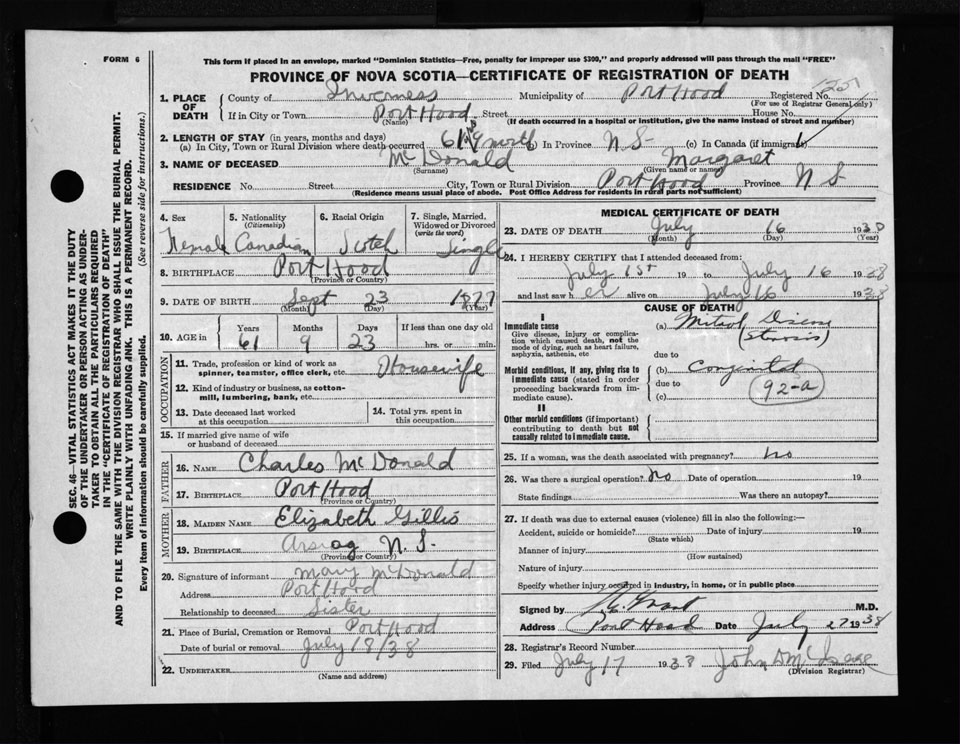 FORM 6
This form if placed in an envelope, marked "Dominion Statistics—Free, penalty for improper use $300," and properly addressed will pass through the mail "FREE"
PROVINCE OF NOVA SCOTIA—CERTIFICATE OF REGISTRATION OF DEATH
1. PLACE OF DEATH County of Inverness Municipality of Port Hood Registered No.
(For use of Registrar General only)
If in City or Town Port Hood Street House No.
(Name) (If death occurred in a hospital or institution, give the name instead of street and number)
2. LENGTH OF STAY (in years, months and days)
(a) In City, Town or Rural Division where death occurred 61 9 (b) In Province N S. (c) In Canada (if immigrant)
3. NAME OF DECEASED McDonald Margaret
(Surname) (Given name or names)
RESIDENCE No. Street City, Town or Rural Division Port Hood Province N S
(Residence means usual place of abode. Post Office Address for residents in rural parts not sufficient)
4. Sex 5. Nationality (Citizenship) 6. Racial Origin 7. Single, Married, Widowed or Divorced (write the word)
Female Canadian Scotch Single
8. BIRTHPLACE Port Hood
(Province or Country)
9. DATE OF BIRTH Sept 23 1877
(Month) (Day) (Year)
10. AGE in Years Months Days If less than one day old
61 9 23 hrs. or min.
OCCUPATION
11. Trade, profession or kind of work as spinner, teamster, office clerk, etc. Housewife
12. Kind of industry or business, as cotton-mill, lumbering, bank, etc.
13. Date deceased last worked at this occupation
14. Total yrs. spent in this occupation
15. If married give name of wife or husband of deceased
FATHER
16. NAME Charles McDonald
17. BIRTHPLACE Port Hood
(Province or Country)
MOTHER
18. MAIDEN NAME Elizabeth Gillis
19. BIRTHPLACE N. S.
(Province or Country)
20. Signature of informant Mary McDonald
Address Port Hood
Relationship to deceased Sister
21. Place of Burial, Cremation or Removal Port Hood
Date of burial or removal July 18/38
22. UNDERTAKER
(Name and address)
MEDICAL CERTIFICATE OF DEATH
23. DATE OF DEATH July 16 193
(Month) (Day) (Year)
24. I HEREBY CERTIFY that I attended deceased from:
July 1st 19 to July 16 1938
and last saw h er alive on July 16 1938
CAUSE OF DEATH
I
Immediate cause
Give disease, injury or complication which caused death, not the mode of dying, such as heart failure, asphyxia, asthenia, etc
(a) Mitral Disease
(Stenosis)
due to
Morbid conditions, if any, giving rise to immediate cause (stated in order proceeding backwards from immediate cause).
(b) Congenital
due to
(c) 92-a
II
Other morbid conditions (if important) contributing to death but not causally related to immediate cause.
25. If a woman, was the death associated with pregnancy? no
26. Was there a surgical operation? No Date of operation 19
State findings Was there an autopsy?
27. If death was due to external causes (violence) fill in also the following:—
Accident, suicide or homicide? Date of injury 19
(State which)
Manner of injury
(How sustained)
Nature of injury
Specify whether injury occurred in industry, in home, or in public place
Signed by Grant M.D.
Address Port Hood Date July 27 1938
28. Registrar's Record Number
29. Filed July 17 1938 John D
(Division Registrar)
SEC. 46—VITAL STATISTICS ACT MAKES IT THE DUTY
OF THE UNDERTAKER OR PERSON ACTING AS UNDER-
TAKER TO OBTAIN ALL THE PARTICULARS REQUIRED
IN THE "CERTIFICATE OF REGISTRATION OF DEATH"
AND TO FILE THE SAME WITH THE DIVISION REGISTRAR WHO SHALL ISSUE THE BURIAL PERMIT.
WRITE PLAINLY WITH UNFADING INK. THIS IS A PERMANENT RECORD.
Every item of information should be carefully supplied. (See reverse side for instructions.)